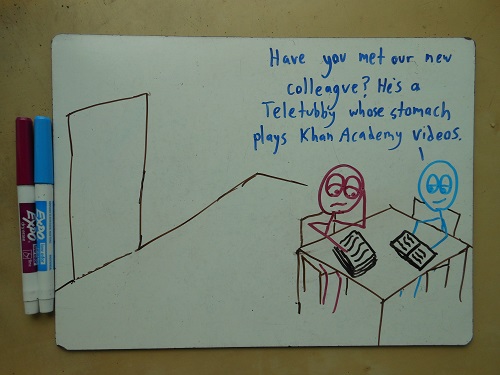 Have you met our new
colleague? He's a
Teletubby whose stomach
plays Khan Academy videos.
EXPO
EXPO